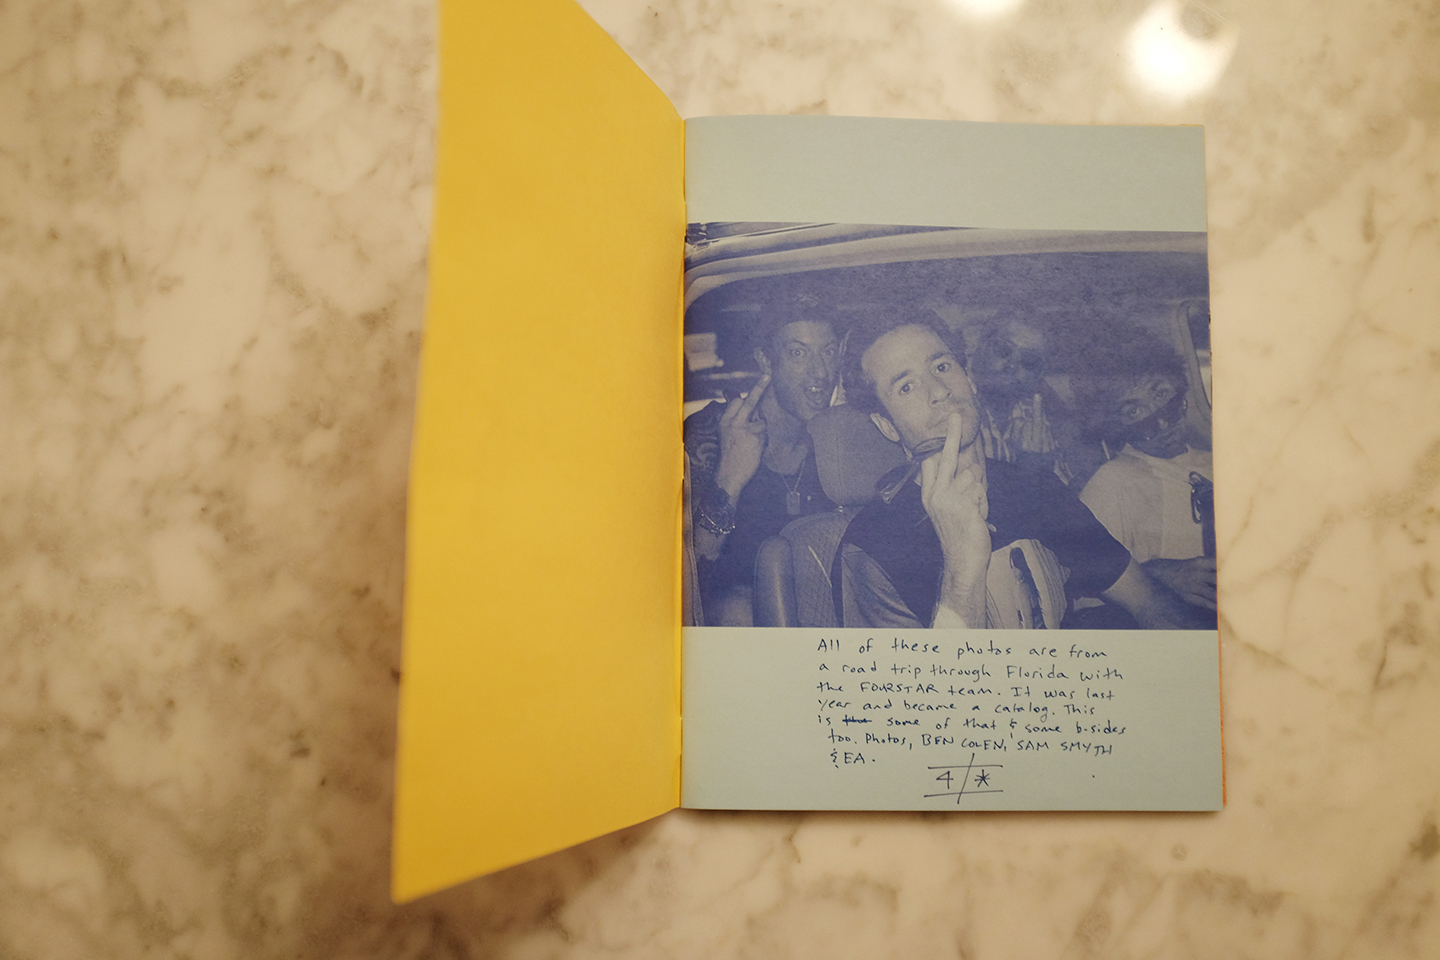 All of these photos are from
a road trip through Florida with
the FOURSTAR team. It was last
year and became a catalog. This
is some of that & some b-sides
too. Photos, BEN COLEN, SAM SMYTH
& EA.
4/*